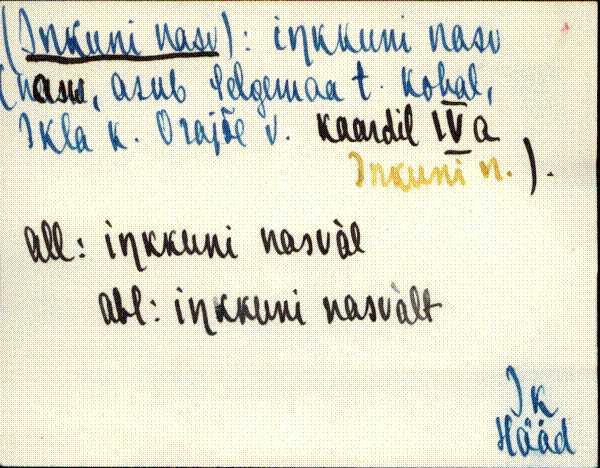 (Inkuni nasv): iŋkkuni nasv
(nasv, asub Selgemaa t. kohal,
Ikla k. Orajõe v. kaardil IV a
Inkuni n.).
all: iŋkkuni nasvàl
abl: iŋkkuni nasvàlt
Ik
Hääd